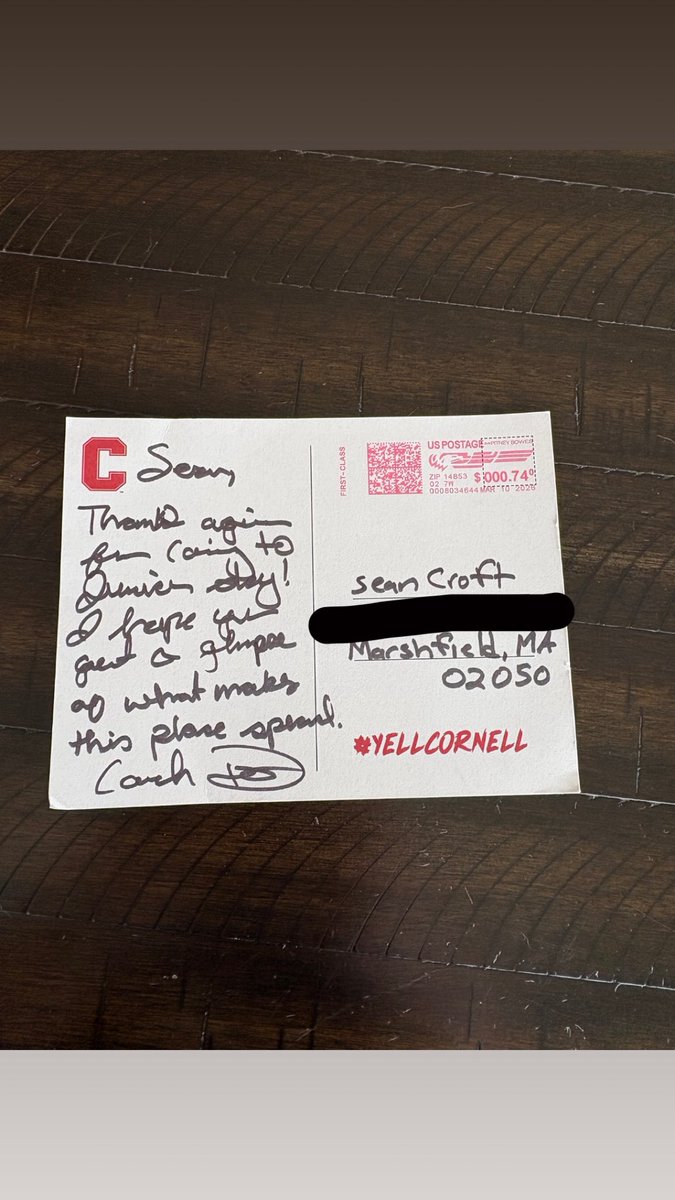 C Sean,
Thanks again
for coming to
Junior day!
I hope you
got a glimpse
of what makes
this place special.
Coach
FIRST-CLASS
US POSTAGE PITNEY BOWES
ZIP 14853 $000.74⁰
02 7W
0008034644 MAR 10 2026
Sean Croft
Marshfield, MA
02050
#YELLCORNELL